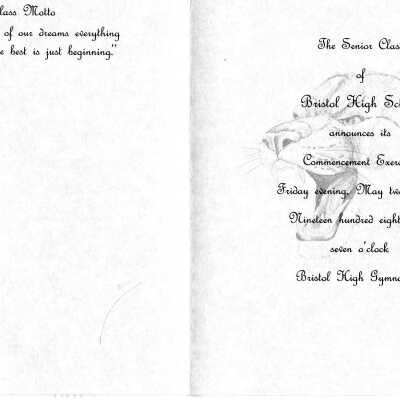 lass Motto
of our dreams everything
e best is just beginning."
The Senior Clas
of
Bristol High Sc
announces its
Commencement Exer
Friday evening, May tw
Nineteen hundred eight
seven o'clock
Bristol High Gymna